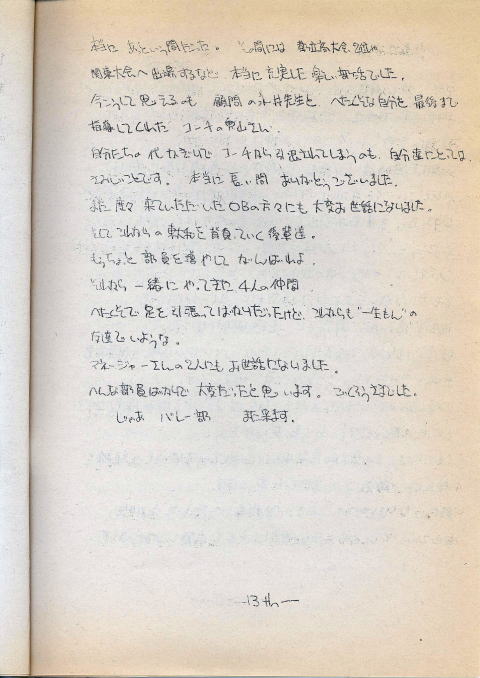 本当に あっという間だった。 その間には 都立高大会 2位や
関東大会へ出場するなど 本当に充実した楽しい毎日でした。
今こうして思えるのも 顧問の 先生と へたくそな自分を 最後まで
指導してくれた コーチの さん。
自分たちの代かぎりで コーチから引退されてしまうのも、自分達にとっては
さみしいことです。 本当に長い間 ありがとうございました。
また度々 来ていただいたOBの方々にも大変お世話になりました。
そしてこれからの を背負っていく後輩達。
もうちょっと 部員を増やして がんばれよ。
それから 一緒に やってきた 4人の仲間
へたくそで 足を引張ってばかりだったけど、これからも"一生もん"の
友達でいような。
マネージャーさんの2人にもお世話になりました。
へんな部員ばかりで 大変だったと思います。 ごくろうさまでした。
じゃあ バレー部 また来ます。
—13th—